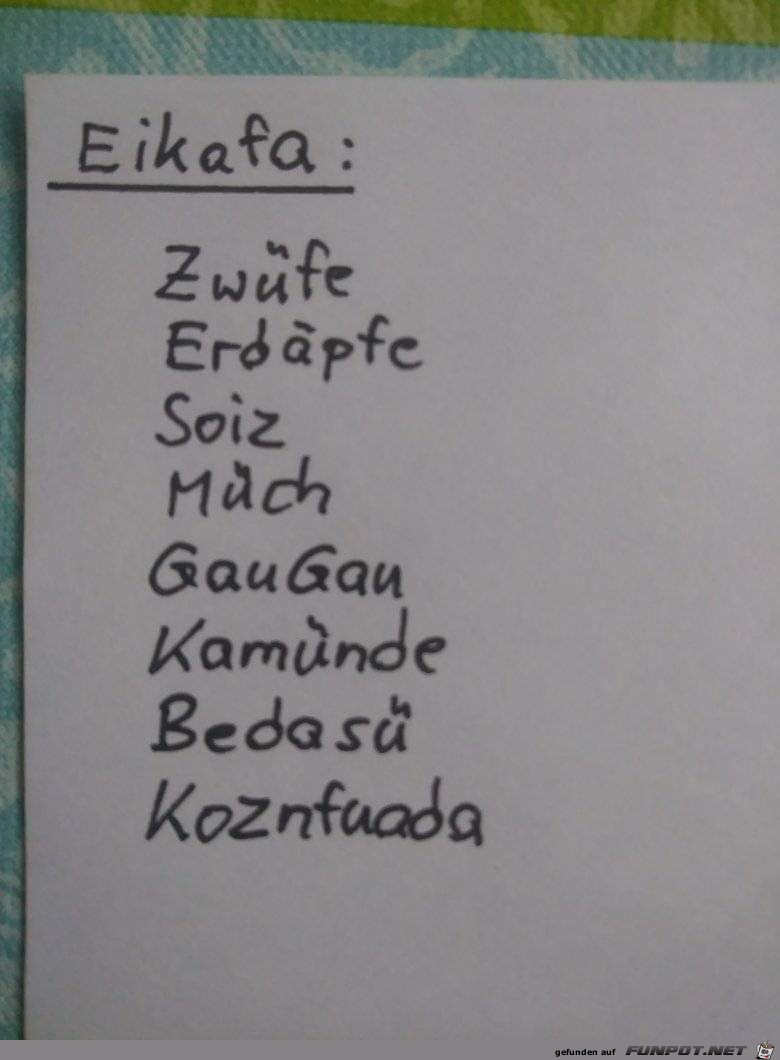 Eikafa:
Zwüfe
Erdäpfe
Soiz
Müch
GauGau
Kamünde
Bedasü
Koznfuada
gefunden auf FUNPOT.NET